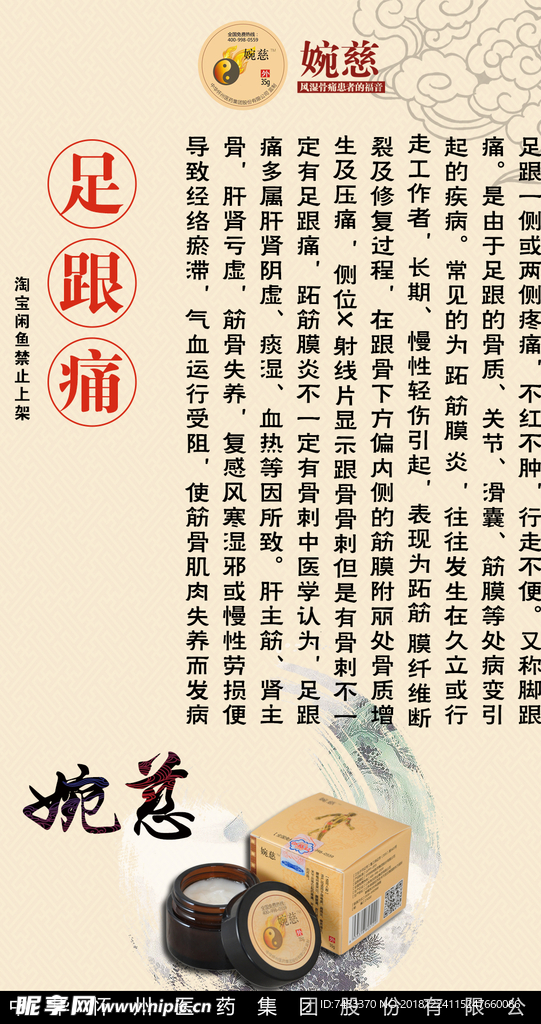 全国免费热线：
400-998-0559
婉慈
外
35g
婉慈
风湿骨痛患者的福音
足跟痛
淘宝闲鱼禁止上架
足跟一侧或两侧疼痛，不红不肿，行走不便。又称脚跟
痛。是由于足跟的骨质、关节、滑囊、筋膜等处病变引
起的疾病。常见的为跖筋膜炎，往往发生在久立或行
走工作者，长期、慢性轻伤引起，表现为跖筋膜纤维断
裂及修复过程，在跟骨下方偏内侧的筋膜附丽处骨质增
生及压痛，侧位X射线片显示跟骨骨刺但是有骨刺不一
定有足跟痛，跖筋膜炎不一定有骨刺中医学认为，足跟
痛多属肝肾阴虚、痰湿、血热等因所致。肝主筋、肾主
骨，肝肾亏虚，筋骨失养，复感风寒湿邪或慢性劳损便
导致经络瘀滞，气血运行受阻，使筋骨肌肉失养而发病
婉慈
婉慈
婉慈
婉慈
外
昵享网 www.nipic.cn
州医药集团股份有限公